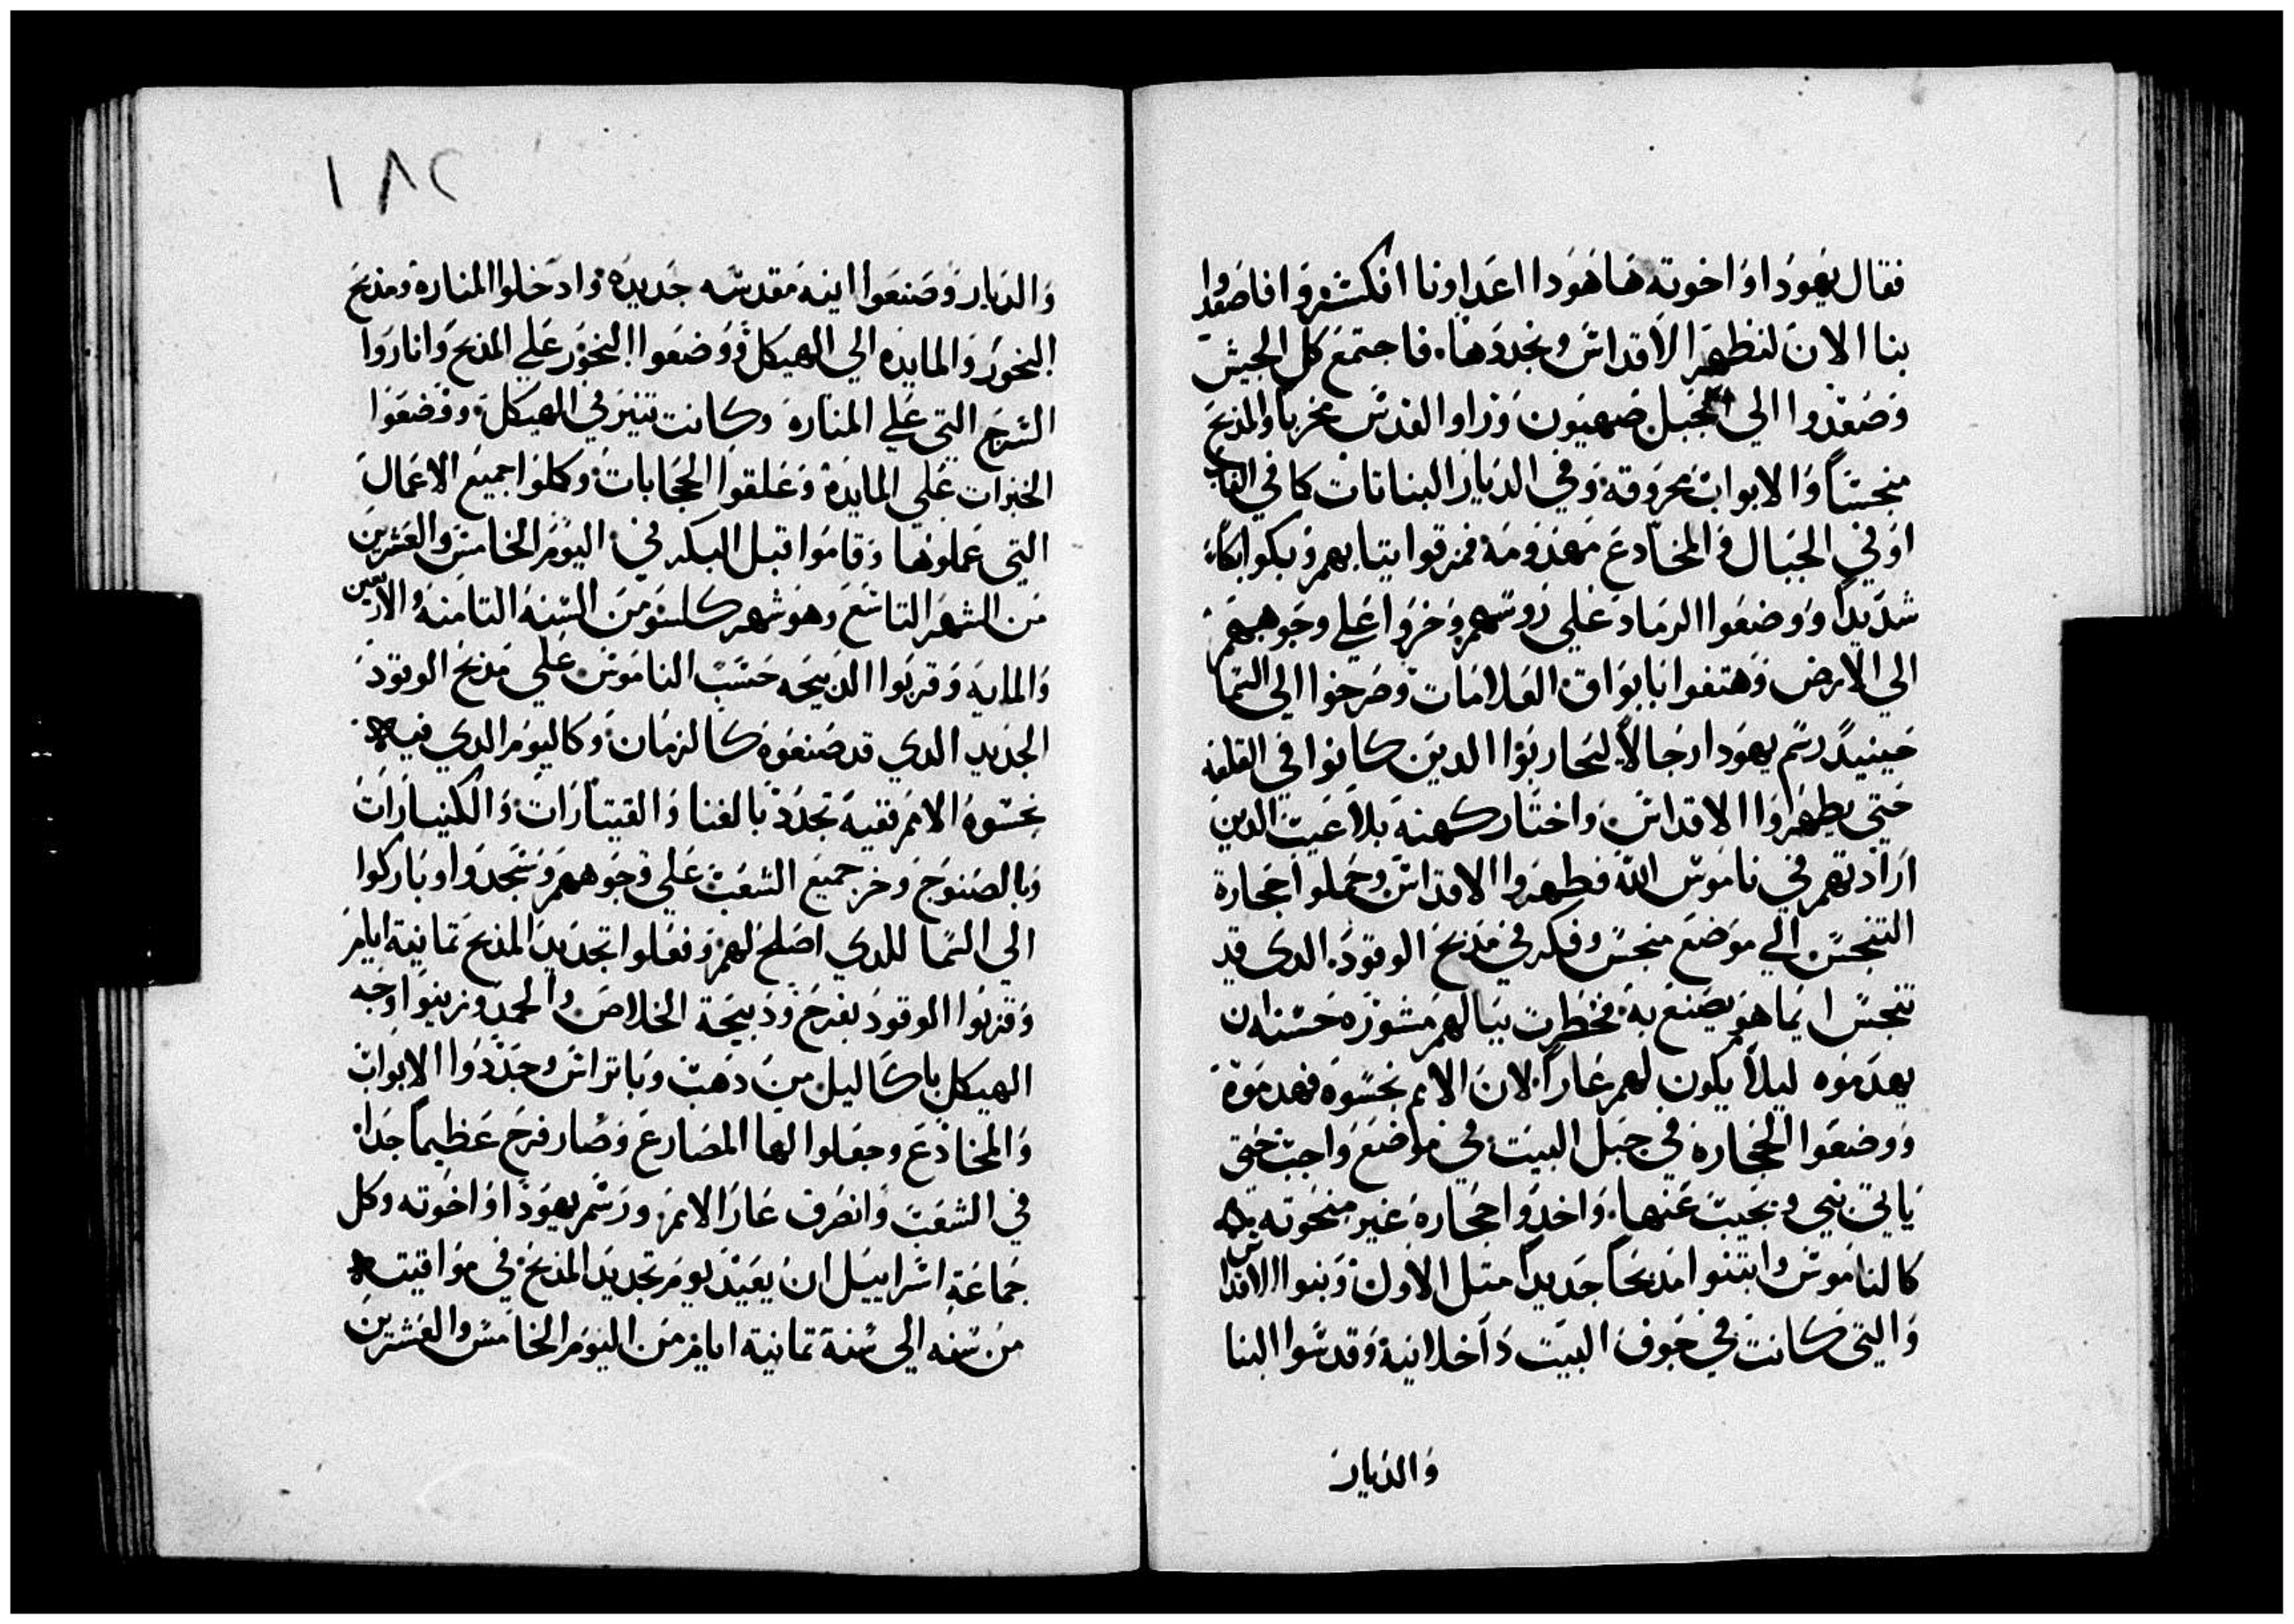 فقال يهودا واخوته هاهودا اعداونا انكشروا فاصعدوا
بنا الان لنطهر الاقداس ونجددها. فاجتمع كل الجيش
وصعدوا الي جبل صهيون وراو القدس مخربا والمذبح
منجسا والابواب محروقة وفي الديار النباتات كما في الغاب
او في الجبال والمخادع مهدومة فمزقوا ثيابهم وبكوا بكاء
شديدا ووضعوا الرماد علي روسهم وخروا علي وجوههم
الي الارض وهتفوا بابواق العلامات وصرخوا الي السما
حينيد رسم يهودا رجالا ليحاربوا الدين كانوا في القلعه
حتي يطهروا الاقداس واختار كهنة بلا عيب الدين
ارادتهم في ناموس الله فطهروا الاقداس وحملوا حجارة
التنجس الي موضع منجس وفكر في مذبح الوقود. الدي قد
تنجس ايما هو يصنع به فخطرت ببالهم مشورة حسنه ان
يهدموه ليلا يكون لهم عارا لان الامم نجسوه فهدموه
ووضعوا الحجارة في جبل البيت في موضع واجب حتي
ياتي نبي ويجيب عنها. واخدوا حجارة غير منحوته
كالناموس وابتنوا مذبحا جديدا مثل الاول وبنوا الاقداس
والتي كانت في جوف البيت داخلانية وقدسوا البنا
والديار
١٨٢
والديار وصنعوا انية مقدسه جديدة وادخلوا المنارة ومذبح
البخور والمايدة الي الهيكل ووضعوا البخور علي المذبح واناروا
السرج التي علي المنارة وكانت تنير في الهيكل ووضعوا
الخبزات علي المايدة وعلقوا الحجابات وكملوا جميع الاعمال
التي عملوها وقاموا قبل البكر في اليوم الخامس والعشرين
من الشهر التاسع وهو شهر كاسلو من السنة الثامنة والاربعين
والماية وقربوا الذبيحه حسب الناموس علي مذبح الوقود
الجديد الدي قد صنعوه كالزمان وكاليوم الدي فيه
نجسوه الامم ففيه تجدد بالغنا والقيتارات والكنيارات
وبالصنوج وخر جميع الشعب علي وجوههم وسجدوا وباركوا
الي السما للدي اصلح لهم وفعلوا تجديد المذبح ثمانية ايام
وقربوا الوقود بفرح وذبيحة الخلاص والحمد وزينوا وجه
الهيكل باكاليل من ذهب وباتراس وجددوا الابواب
والمخادع وجعلوا لها المصارع وصار فرح عظيما جدا
في الشعب وانصرف عار الامم ورسم يهودا واخوته وكل
جماعة اسراييل ان يعيد يوم تجديد المذبح في مواقيته
من سنه الي سنة ثمانية ايام من اليوم الخامس والعشرين